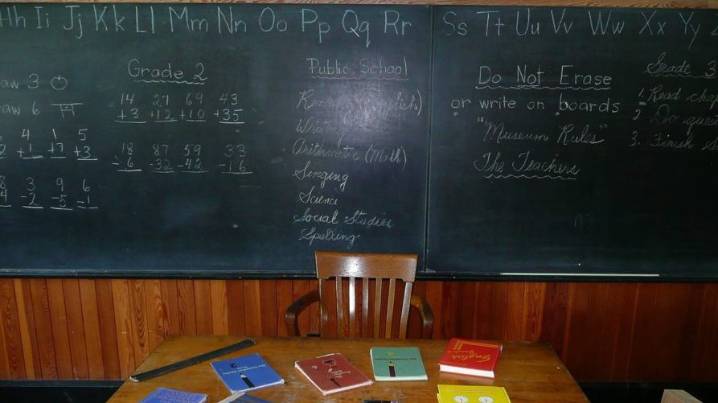 Hh Ii Jj Kk Ll Mm Nn Oo Pp Qq Rr Ss Tt Uu Vv Ww Xx Yy
Grade 2
14 27 69 43
+3 +12 +10 +35
18 87 59 33
-6 -32 -42 -16
aw 3
aw 6
4 1 5
+1 +7 +3
3 9 6
-2 -5 -1
Public School
Arithmetic (Math)
Singing
Science
Social Studies
Spelling
Do Not Erase
or write on boards
"Museum Rules"
The Teachers
Grade 3
1. Read
2. Do
3. Finish
English